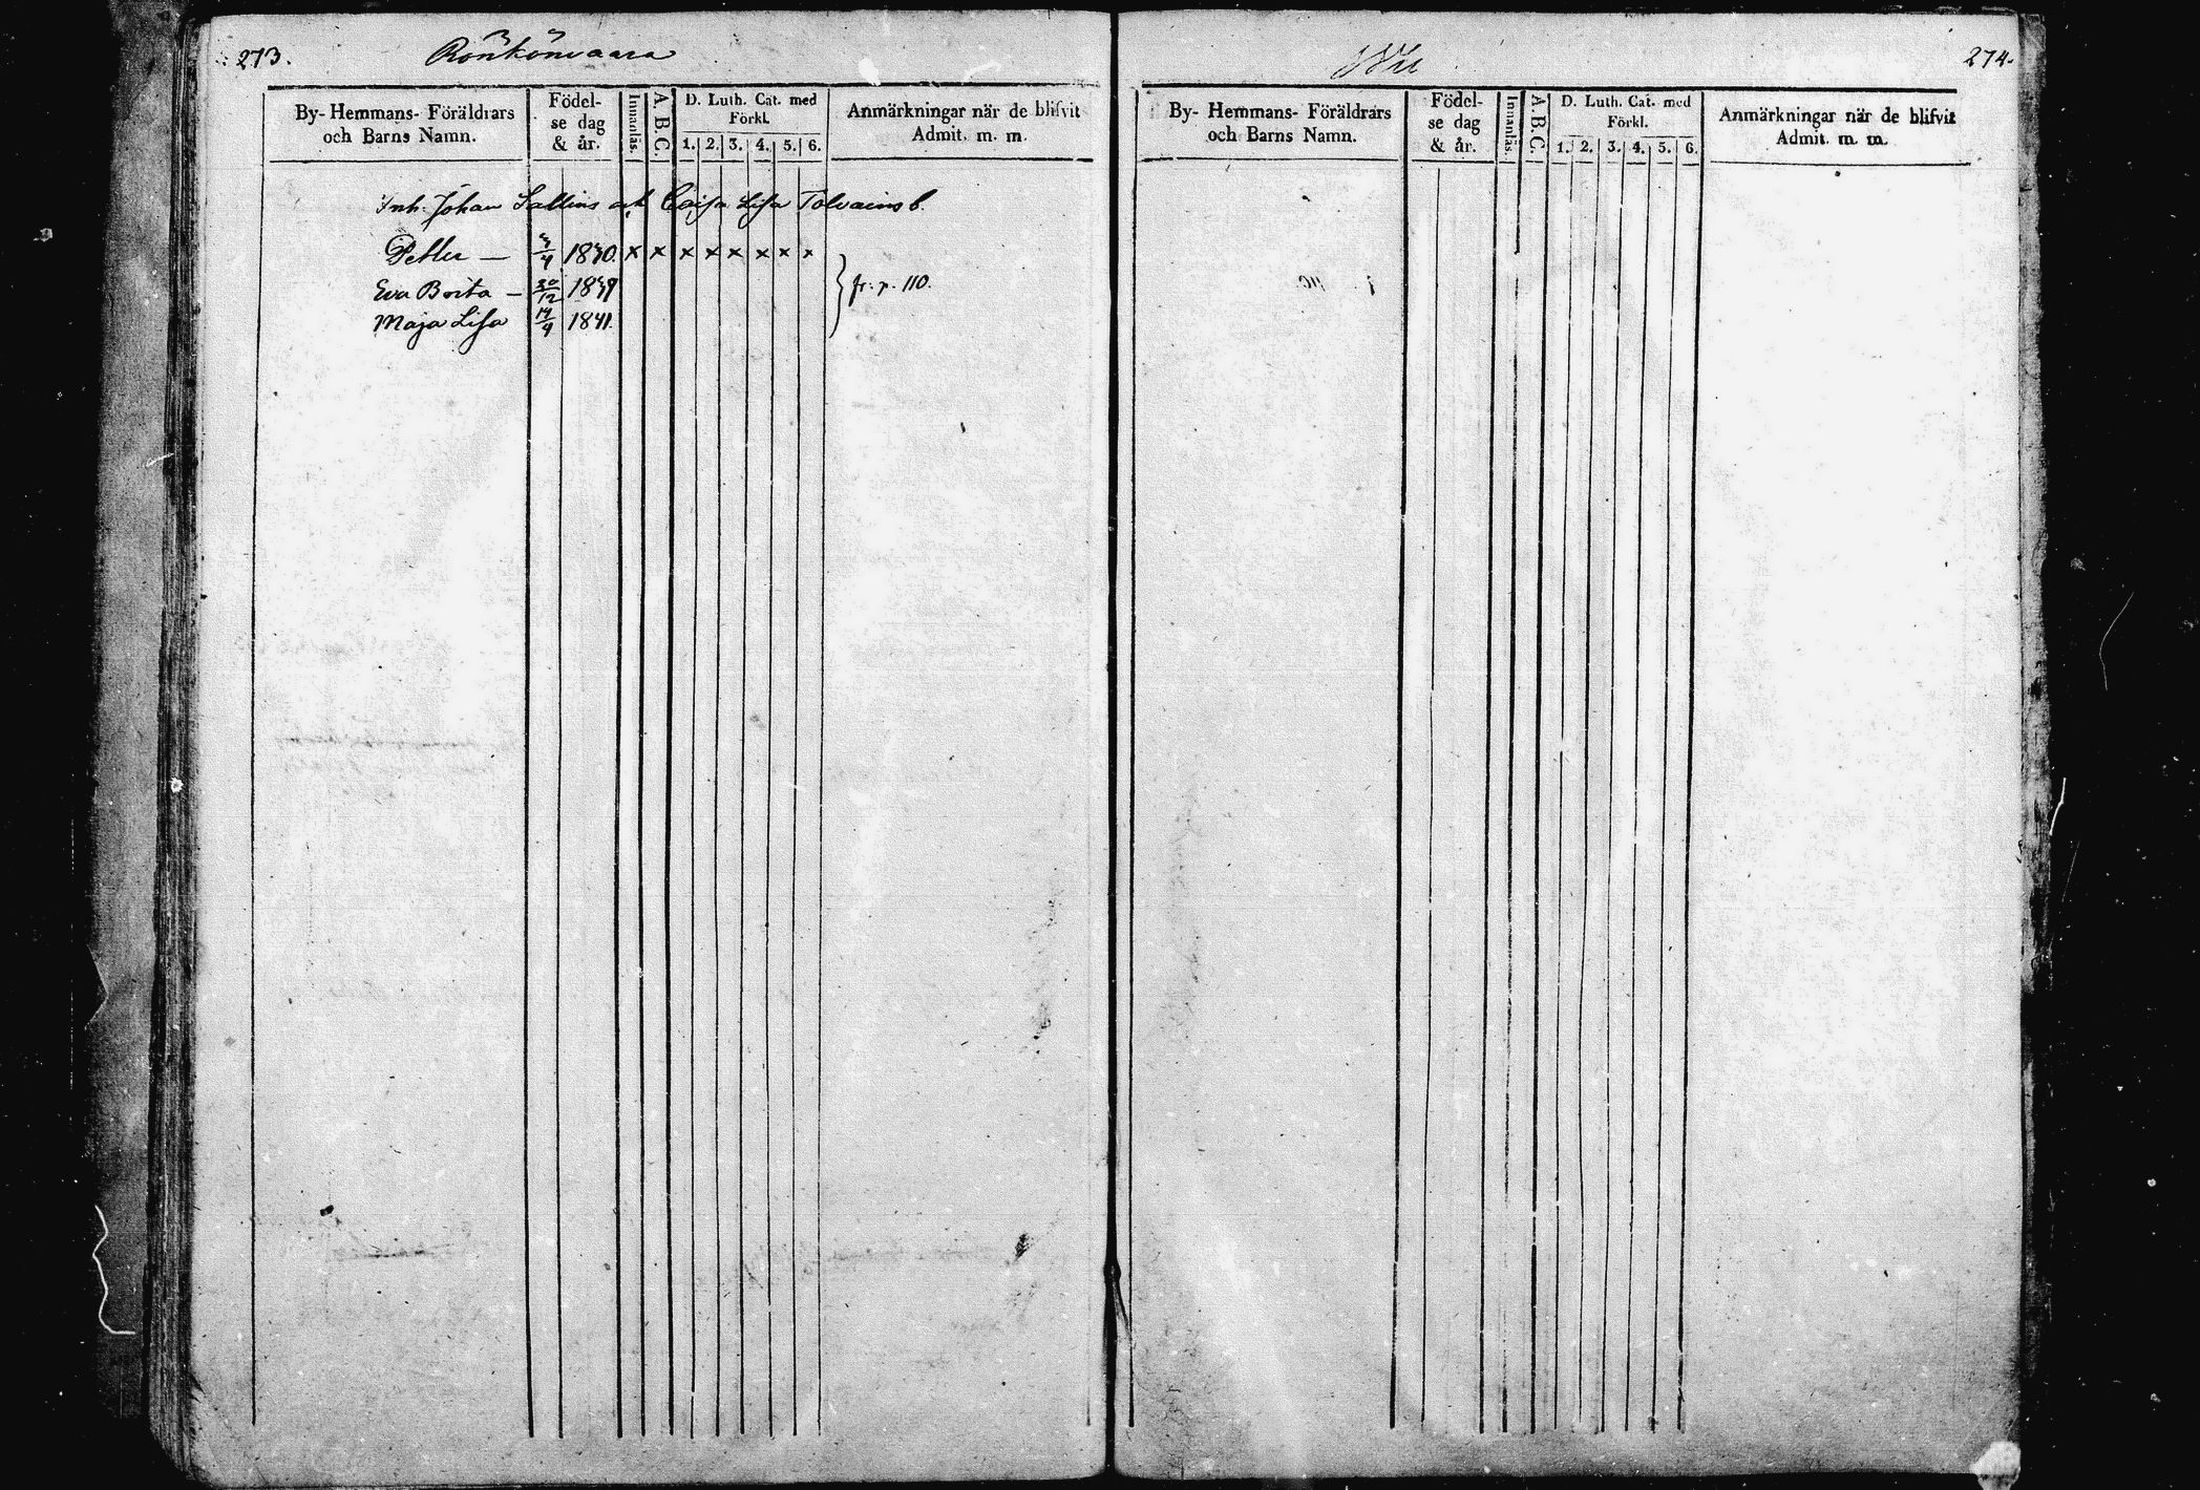 273.
Rönkönvaara
By- Hemmans- Föräldrars och Barns Namn.
Födelse dag & år.
Innanläs.
A.B.C.
D. Luth. Cat. med Förkl.
1. 2. 3. 4. 5. 6.
Anmärkningar när de blifvit Admit. m. m.
Inh. Johan Sallins och Caisa Lisa Tolvains b.
Petter — 1840. x x x x x x x x
Eva Brita — 30/12 1839
fr. p. 110.
Maja Lisa 14/4 1841.
274.
By- Hemmans- Föräldrars och Barns Namn.
Födelse dag & år.
Innanläs.
A.B.C.
D. Luth. Cat. med Förkl.
1. 2. 3. 4. 5. 6.
Anmärkningar när de blifvit Admit. m. m.